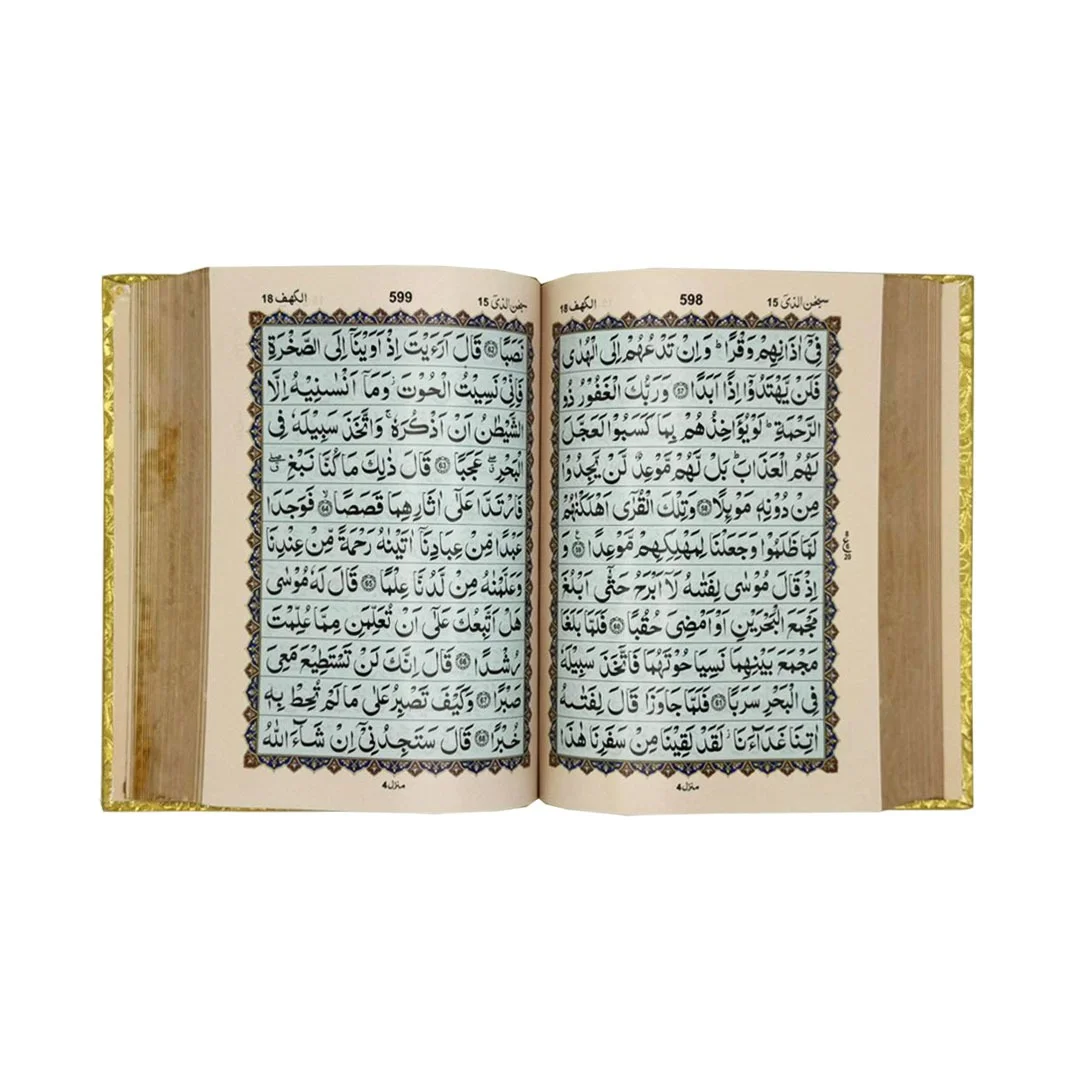 سبحٰن الذیٓ 15
598
الكهف 18
فِیْۤ اٰذَانِهِمْ وَقْرًا ؕ وَاِنْ تَدْعُهُمْ اِلَى الْهُدٰى
فَلَنْ یَّهْتَدُوْۤا اِذًا اَبَدًا ۝57 وَرَبُّكَ الْغَفُوْرُ ذُو
الرَّحْمَةِ ؕ لَوْ یُؤَاخِذُهُمْ بِمَا كَسَبُوْا لَعَجَّلَ
لَهُمُ الْعَذَابَ ؕ بَلْ لَّهُمْ مَّوْعِدٌ لَّنْ یَّجِدُوْا
مِنْ دُوْنِهٖ مَوْىِٕلًا ۝58 وَتِلْكَ الْقُرٰۤى اَهْلَكْنٰهُمْ
لَمَّا ظَلَمُوْا وَجَعَلْنَا لِمَهْلِكِهِمْ مَّوْعِدًا ۝59 وَ
اِذْ قَالَ مُوْسٰى لِفَتٰىهُ لَاۤ اَبْرَحُ حَتّٰۤى اَبْلُغَ
مَجْمَعَ الْبَحْرَیْنِ اَوْ اَمْضِیَ حُقُبًا ۝60 فَلَمَّا بَلَغَا
مَجْمَعَ بَیْنِهِمَا نَسِیَا حُوْتَهُمَا فَاتَّخَذَ سَبِیْلَهٗ
فِی الْبَحْرِ سَرَبًا ۝61 فَلَمَّا جَاوَزَا قَالَ لِفَتٰىهُ
اٰتِنَا غَدَآءَنَا ؗ لَقَدْ لَقِیْنَا مِنْ سَفَرِنَا هٰذَا
منزل 4
سبحٰن الذیٓ 15
599
الكهف 18
نَصَبًا ۝62 قَالَ اَرَءَیْتَ اِذْ اَوَیْنَاۤ اِلَى الصَّخْرَةِ
فَاِنِّیْ نَسِیْتُ الْحُوْتَ ؗ وَمَاۤ اَنْسٰىنِیْهُ اِلَّا
الشَّیْطٰنُ اَنْ اَذْكُرَهٗ ۚ وَاتَّخَذَ سَبِیْلَهٗ فِی
الْبَحْرِ ۖۗ عَجَبًا ۝63 قَالَ ذٰلِكَ مَا كُنَّا نَبْغِ ۖۗ
فَارْتَدَّا عَلٰۤى اٰثَارِهِمَا قَصَصًا ۝64 فَوَجَدَا
عَبْدًا مِّنْ عِبَادِنَاۤ اٰتَیْنٰهُ رَحْمَةً مِّنْ عِنْدِنَا
وَعَلَّمْنٰهُ مِنْ لَّدُنَّا عِلْمًا ۝65 قَالَ لَهٗ مُوْسٰى
هَلْ اَتَّبِعُكَ عَلٰۤى اَنْ تُعَلِّمَنِ مِمَّا عُلِّمْتَ
رُشْدًا ۝66 قَالَ اِنَّكَ لَنْ تَسْتَطِیْعَ مَعِیَ
صَبْرًا ۝67 وَكَیْفَ تَصْبِرُ عَلٰى مَا لَمْ تُحِطْ بِهٖ
خُبْرًا ۝68 قَالَ سَتَجِدُنِیْۤ اِنْ شَآءَ اللّٰهُ
منزل 4